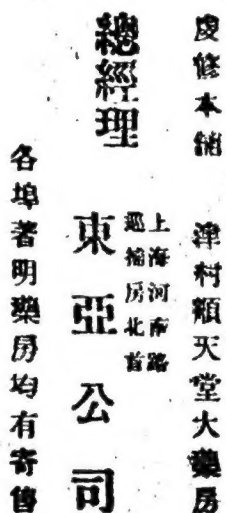 虔修本舖 津村順天堂大藥房
總經理
上海河南路
巡捕房北首
東亞公司
各埠著明藥房均有寄售